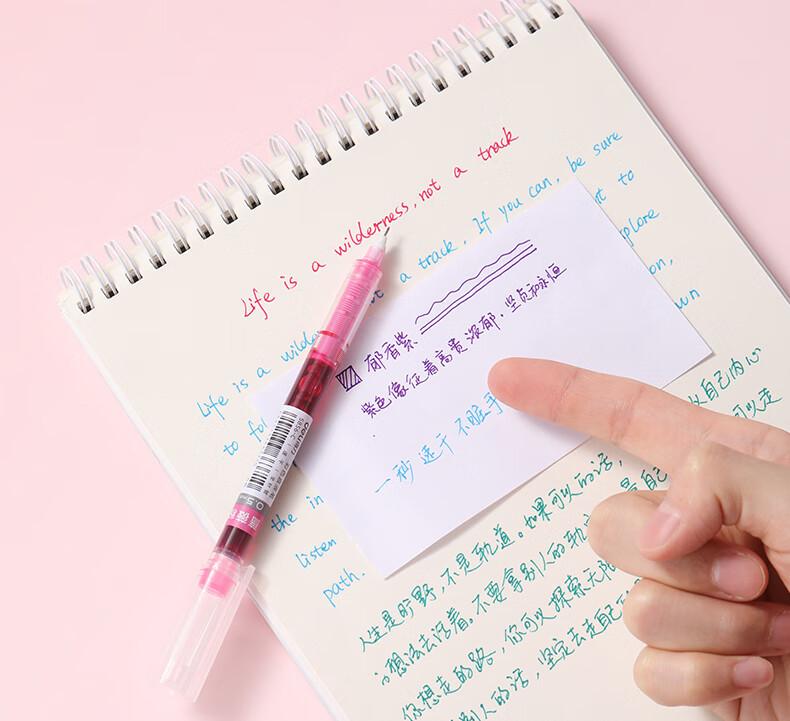 Life is a wilderness, not a track
Life is a wilde a track. If you can, be sure
to fol t to
plore
the in on,
listen wn
path.
郁香紫
紫色像征着高贵浓郁·坚贞和永恒
一秒速干不脏手
自己内心
人生是旷野,不是轨道。如果可以的话, 可以走
想法去活着。不要拿别人的轨 自己
你想走的路,你可以探索无限
别人的话,坚定去走自己
deli
0.5